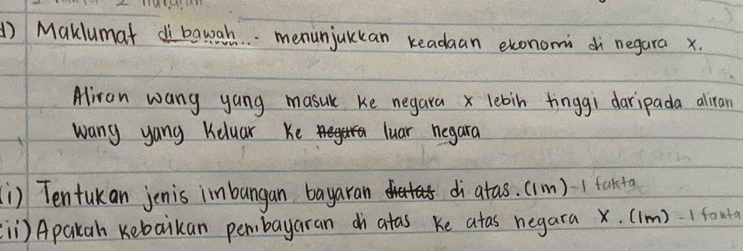 d) Maklumat di bawah... menunjukkan keadaan ekonomi di negara X.
Aliran wang yang masuk ke negara X lebih tinggi daripada aliran
wang yang keluar ke negara luar negara
(i) Tentukan jenis imbangan bayaran diatas di atas. (1m) - 1 fakta
(ii) Apakah kebaikan pembayaran di atas ke atas negara X. (1m) - 1 fakta